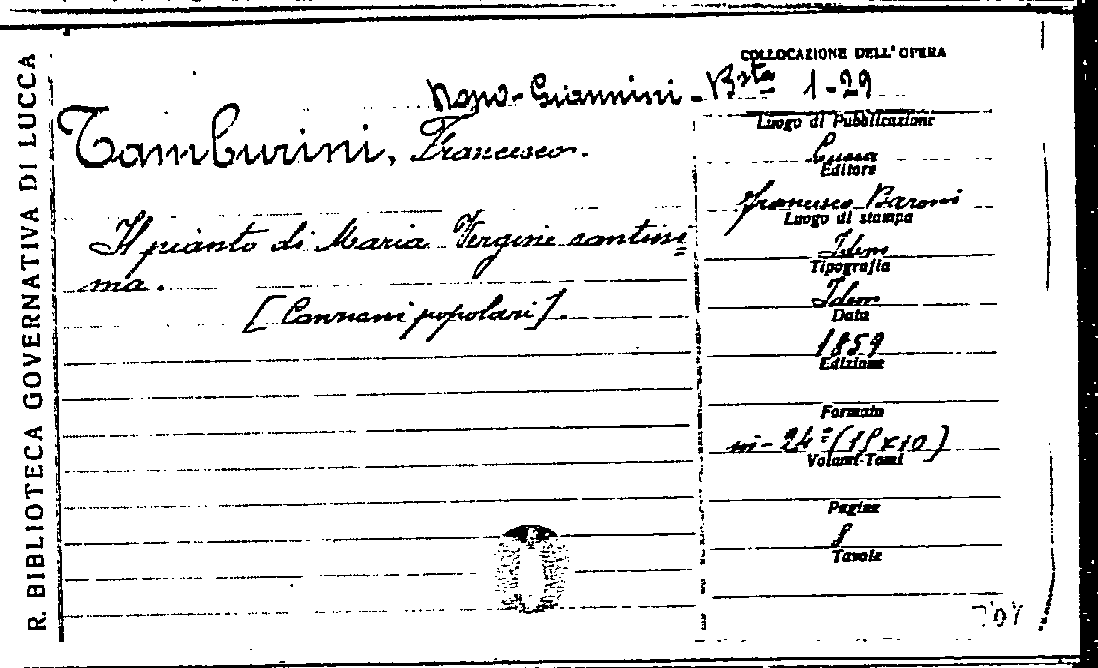 R. BIBLIOTECA GOVERNATIVA DI LUCCA
COLLOCAZIONE DELL'OPERA
Giannini - Bsta 1-29
Tamburini, Francesco.
Il pianto di Maria Vergine santissi
ma.
[Canzoni popolari].
Luogo di Pubblicazione
Lucca
Editore
Francesco Baroni
Luogo di stampa
Idem
Tipografia
Idem
Data
1859
Edizione
Formato
in-24º (15×10)
Volumi-Tomi
Pagine
8
Tavole